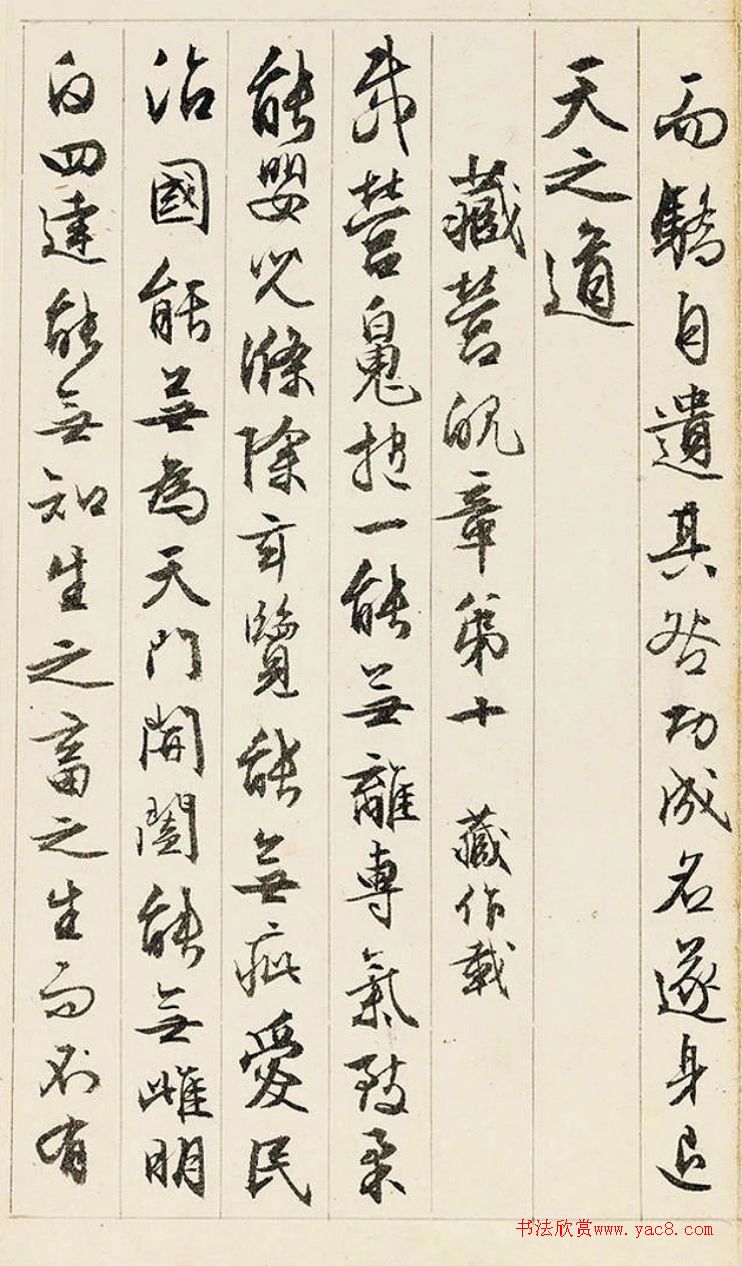 而驕自遺其咎功成名遂身退
天之道
藏營魄章第十 藏作載
營魄抱一能無離專氣致柔
能嬰兒滌除玄覽能無疵愛民
治國能無為天門開闔能無雌明
白四達能無知生之畜之生而不有
书法欣赏www.yac8.com